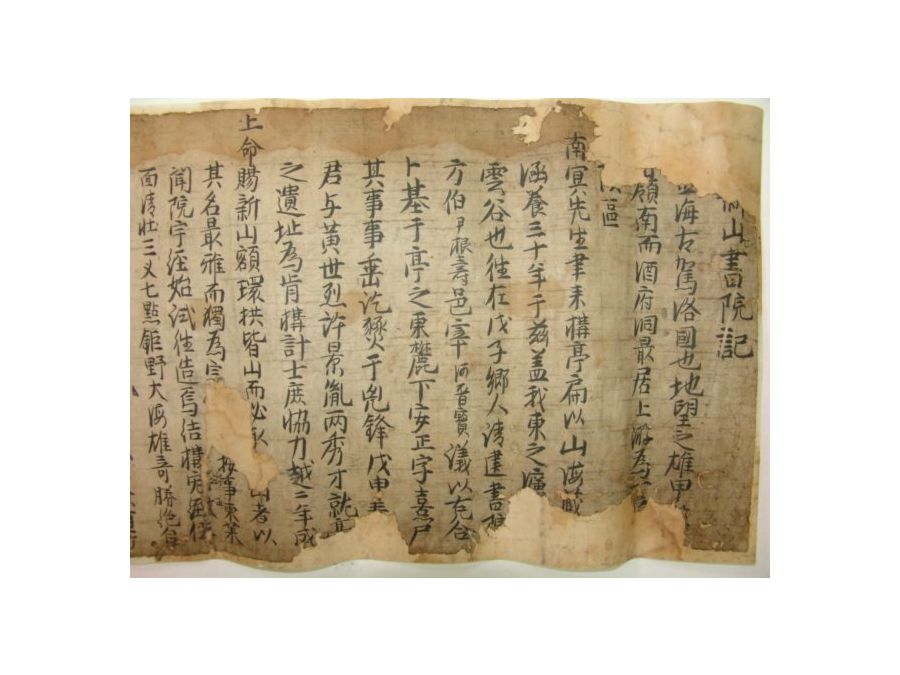 山書院記
海古駕洛國也地望之雄甲
嶺南而酒府洞最居上游爲
區
南冥先生聿來構亭扁以山海藏
涵養三十年于兹盖我東之
雲谷也往在戊子鄕人請建書院
方伯尹根壽邑宰河晋寶議以克合
卜基于亭之東麓下安正字憙尸
其事事垂訖燹于兇鋒戊申
君与黃世烈許景胤兩秀才就
之遺址爲肯構計士庶協力越二年成
上命賜新山額環拱皆山而必 山者以
其名最雅而獨爲 按事東萊
聞院宇經始試往造焉結構
面淸壯三叉七點鉅野大海雄奇勝絶